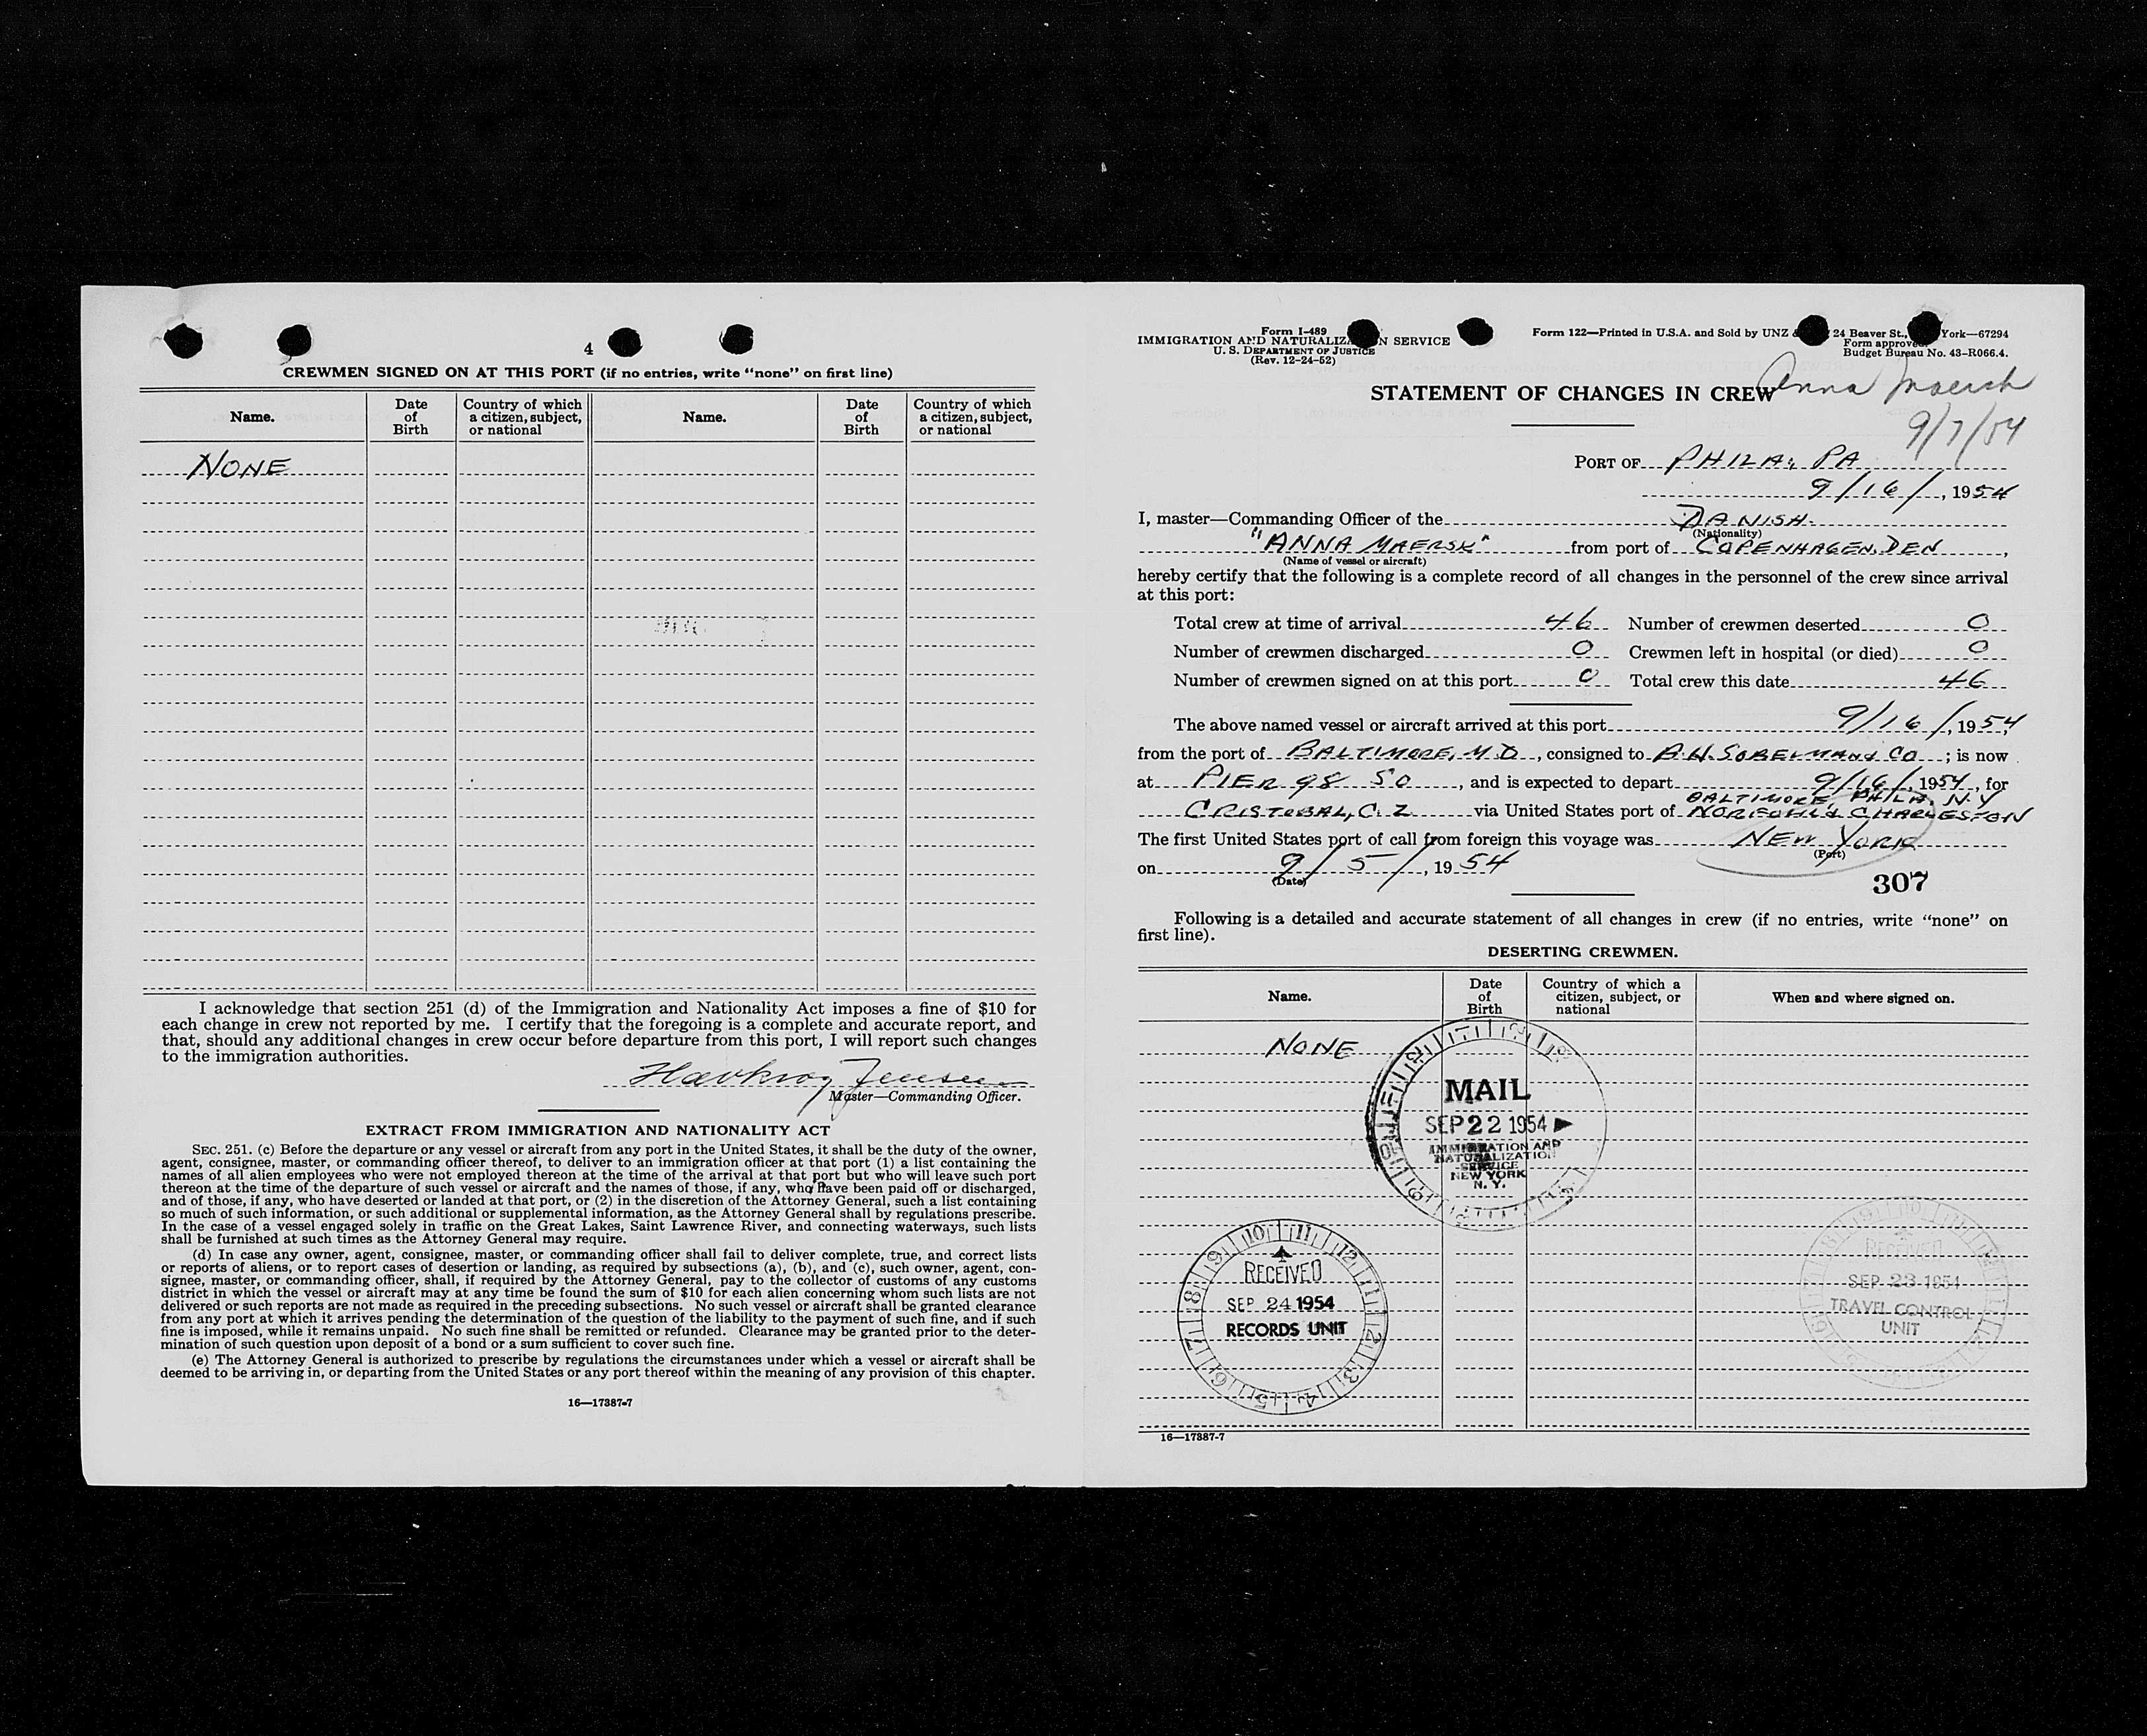 4
CREWMEN SIGNED ON AT THIS PORT (if no entries, write "none" on first line)
Name. Date of Birth Country of which a citizen, subject, or national Name. Date of Birth Country of which a citizen, subject, or national
NONE
I acknowledge that section 251 (d) of the Immigration and Nationality Act imposes a fine of $10 for
each change in crew not reported by me. I certify that the foregoing is a complete and accurate report, and
that, should any additional changes in crew occur before departure from this port, I will report such changes
to the immigration authorities.
Jensen
Master—Commanding Officer.
EXTRACT FROM IMMIGRATION AND NATIONALITY ACT
SEC. 251. (c) Before the departure or any vessel or aircraft from any port in the United States, it shall be the duty of the owner,
agent, consignee, master, or commanding officer thereof, to deliver to an immigration officer at that port (1) a list containing the
names of all alien employees who were not employed thereon at the time of the arrival at that port but who will leave such port
thereon at the time of the departure of such vessel or aircraft and the names of those, if any, who have been paid off or discharged,
and of those, if any, who have deserted or landed at that port, or (2) in the discretion of the Attorney General, such a list containing
so much of such information, or such additional or supplemental information, as the Attorney General shall by regulations prescribe.
In the case of a vessel engaged solely in traffic on the Great Lakes, Saint Lawrence River, and connecting waterways, such lists
shall be furnished at such times as the Attorney General may require.
(d) In case any owner, agent, consignee, master, or commanding officer shall fail to deliver complete, true, and correct lists
or reports of aliens, or to report cases of desertion or landing, as required by subsections (a), (b), and (c), such owner, agent, con-
signee, master, or commanding officer, shall, if required by the Attorney General, pay to the collector of customs of any customs
district in which the vessel or aircraft may at any time be found the sum of $10 for each alien concerning whom such lists are not
delivered or such reports are not made as required in the preceding subsections. No such vessel or aircraft shall be granted clearance
from any port at which it arrives pending the determination of the question of the liability to the payment of such fine, and if such
fine is imposed, while it remains unpaid. No such fine shall be remitted or refunded. Clearance may be granted prior to the deter-
mination of such question upon deposit of a bond or a sum sufficient to cover such fine.
(e) The Attorney General is authorized to prescribe by regulations the circumstances under which a vessel or aircraft shall be
deemed to be arriving in, or departing from the United States or any port thereof within the meaning of any provision of this chapter.
16—17387-7
Form I-489
IMMIGRATION AND NATURALIZATION SERVICE
U. S. DEPARTMENT OF JUSTICE
(Rev. 12-24-52)
Form 122—Printed in U.S.A. and Sold by UNZ & 24 Beaver St., York—67294
Form approved.
Budget Bureau No. 43-R066.4.
STATEMENT OF CHANGES IN CREW
Anna Maersk
9/7/54
PORT OF PHILA, PA
9/16/, 1954
I, master—Commanding Officer of the DANISH
(Nationality)
"ANNA MAERSK" from port of COPENHAGEN, DEN,
(Name of vessel or aircraft)
hereby certify that the following is a complete record of all changes in the personnel of the crew since arrival
at this port:
Total crew at time of arrival 46 Number of crewmen deserted 0
Number of crewmen discharged 0 Crewmen left in hospital (or died) 0
Number of crewmen signed on at this port 0 Total crew this date 46
The above named vessel or aircraft arrived at this port 9/16/, 1954,
from the port of BALTIMORE, MD, consigned to B.H. SOBELMAN & CO; is now
at PIER 98 SO, and is expected to depart 9/16/, 1954, for
BALTIMORE, PHILA, N.Y
CRISTOBAL, C.Z via United States port of NORFOLK & CHARLESTON
The first United States port of call from foreign this voyage was NEW YORK
(Port)
on 9/5/, 1954
(Date)
307
Following is a detailed and accurate statement of all changes in crew (if no entries, write "none" on
first line).
DESERTING CREWMEN.
Name. Date of Birth Country of which a citizen, subject, or national When and where signed on.
NONE
MAIL
SEP 22 1954
IMMIGRATION AND
NATURALIZATION
SERVICE
NEW YORK
N. Y.
RECEIVED
SEP 24 1954
RECORDS UNIT
RECEIVED
SEP 23 1954
TRAVEL CONTROL
UNIT
16—17387-7